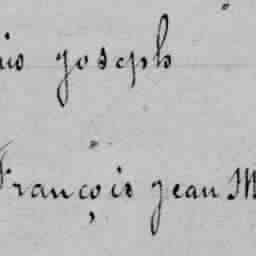 joseph
François jean